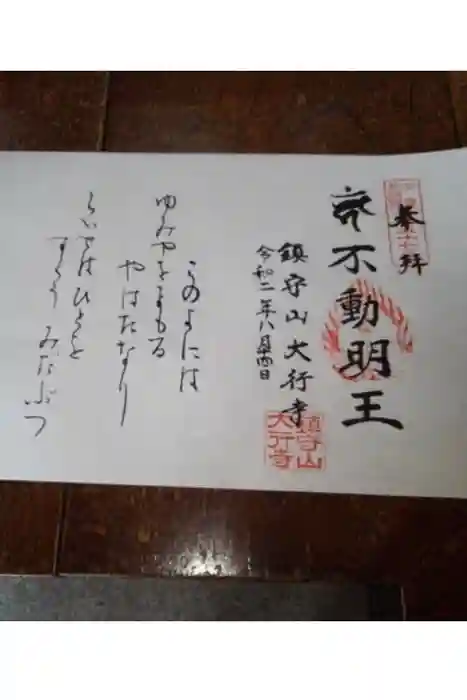 奉拝
不動明王
鎮守山大行寺
令和二年八月四日
鎮守山
大行寺
このよには
ゆみやをまもる
やはたなり
らいせはひとを
すくう みだぶつ